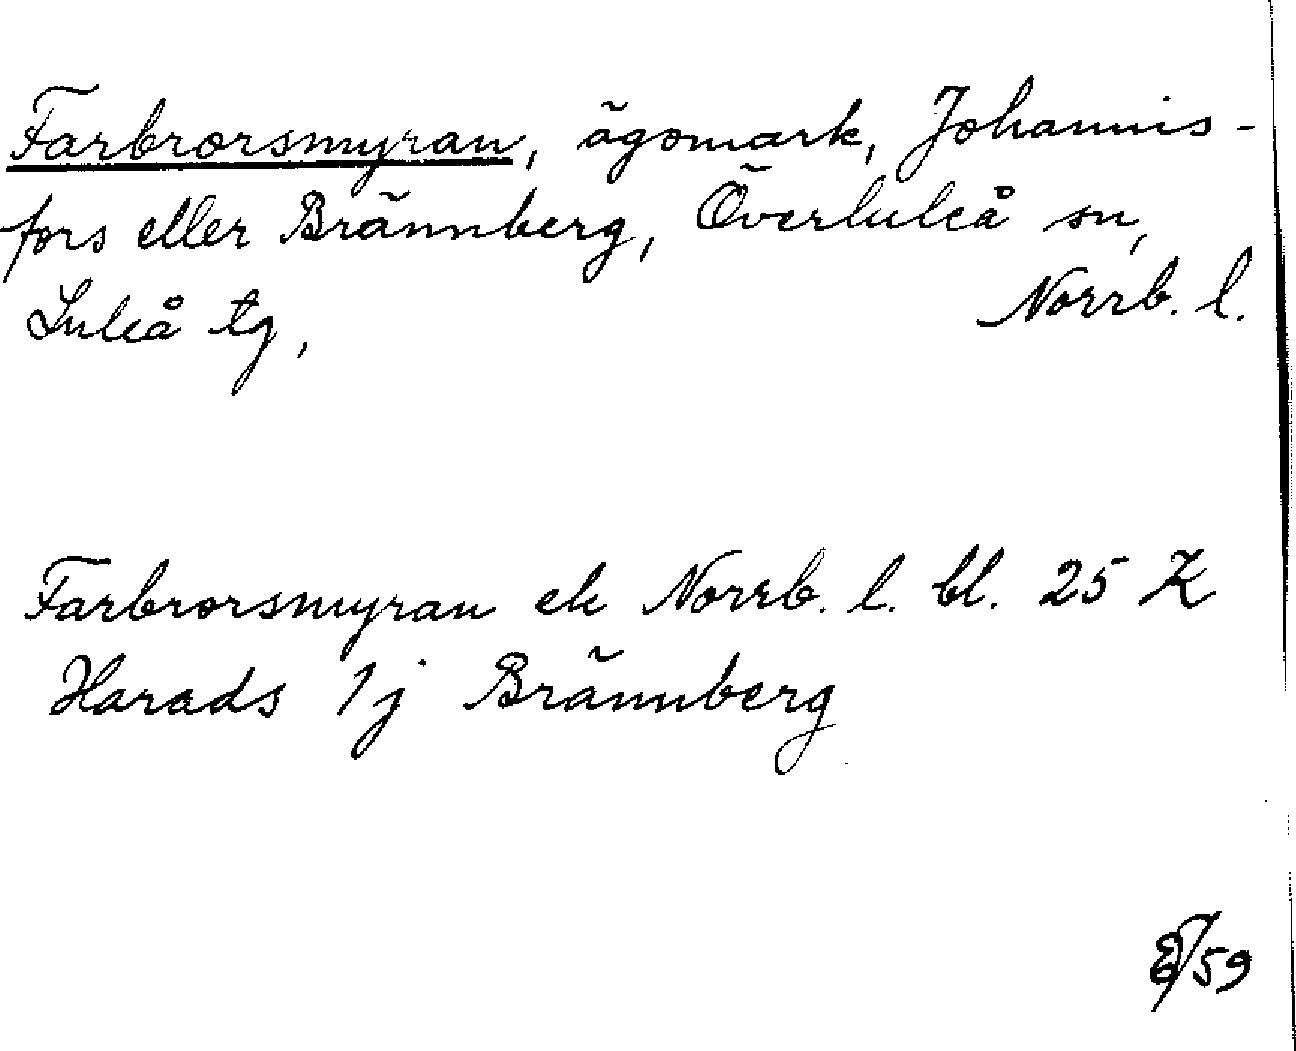 Farbrorsmyran, ägomark, Johannis-
fors eller Brännberg, Överluleå sn,
Luleå tg, Norrb. l.
Farbrorsmyran ek Norrb. l. bl. 25 K
Harads 1j Brännberg
/59